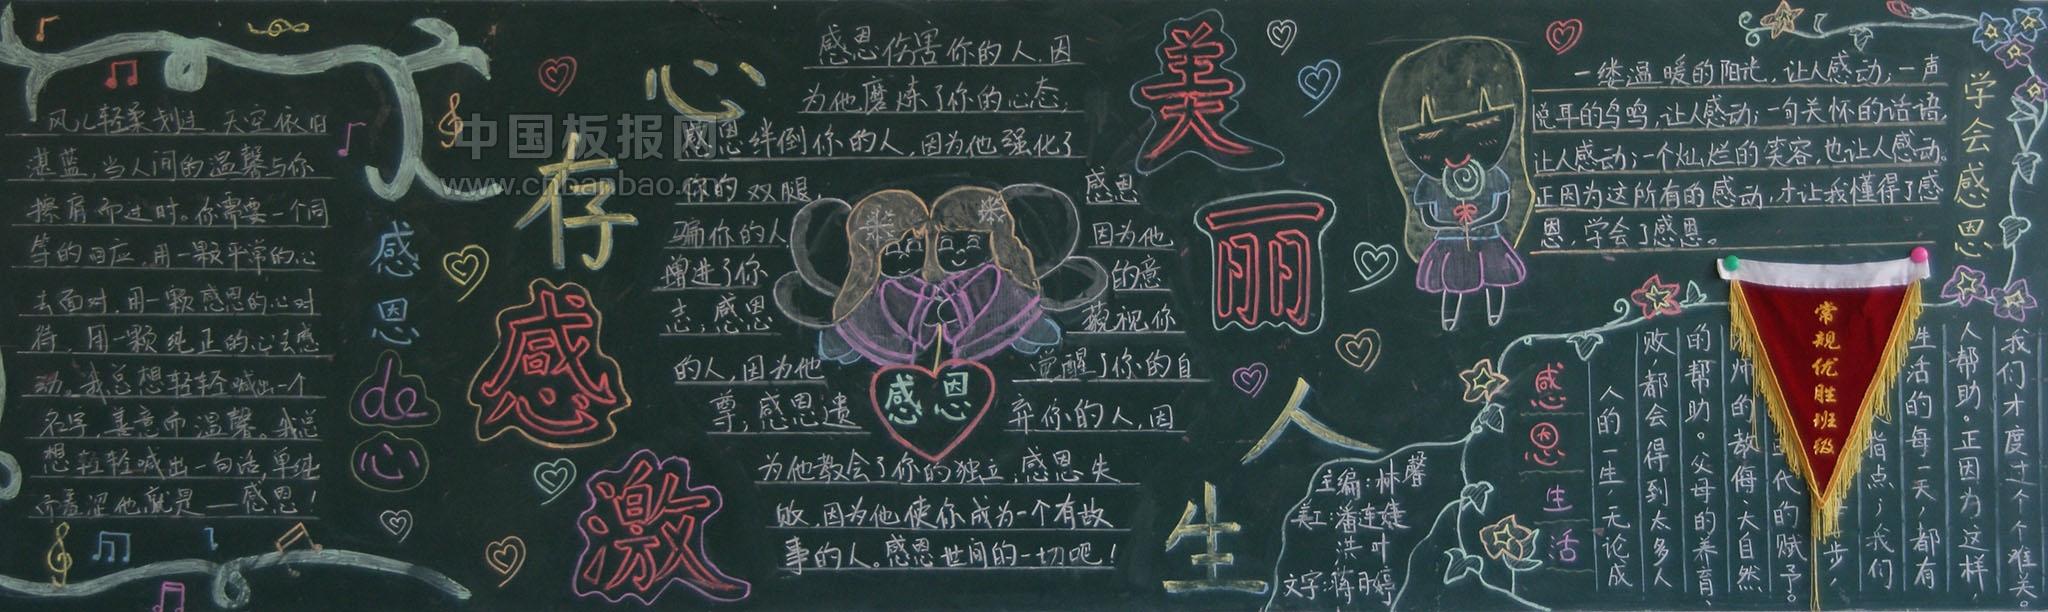 风儿轻柔划过 天空依旧
湛蓝,当人间的温馨与你
擦肩而过时。你需要一个同
等的回应,用一颗平常的心
去面对,用一颗感恩的心对
待,用一颗纯正的心去感
动。我总想轻轻喊出一个
名字,善意而温馨。我总
想轻轻喊出一句话,单纯
而羞涩他就是——感恩!
感恩de心
心存感激
中国板报网
www.cnbanbao.cn
感恩伤害你的人,因
为他磨炼了你的心态;
感恩绊倒你的人,因为他强化了
你的双腿,感恩
骗你的人因为他
增进了你的意
志;感恩藐视你
的人,因为他觉醒了你的自
尊;感恩遗弃你的人,因
为他教会了你的独立;感恩失
败,因为他使你成为一个有故
事的人。感恩世间的一切吧!
感恩
美丽人生
学会感恩
一缕温暖的阳光,让人感动;一声
悦耳的鸟鸣,让人感动;一句关怀的话语,
让人感动;一个灿烂的笑容,也让人感动。
正因为这所有的感动,才让我懂得了感
恩,学会了感恩。
主编:林馨
美工:潘连婕
洪叶
文字:蒋丹婷
感恩生活
人的一生,无论成
败都会得到太多人
的帮助。父母的养育、
师的教侮大自然
代的赋予。
步,
指点;我们
生活的每一天,都有
人帮助。正因为这样,
我们才度过个个难关。
常规优胜班级